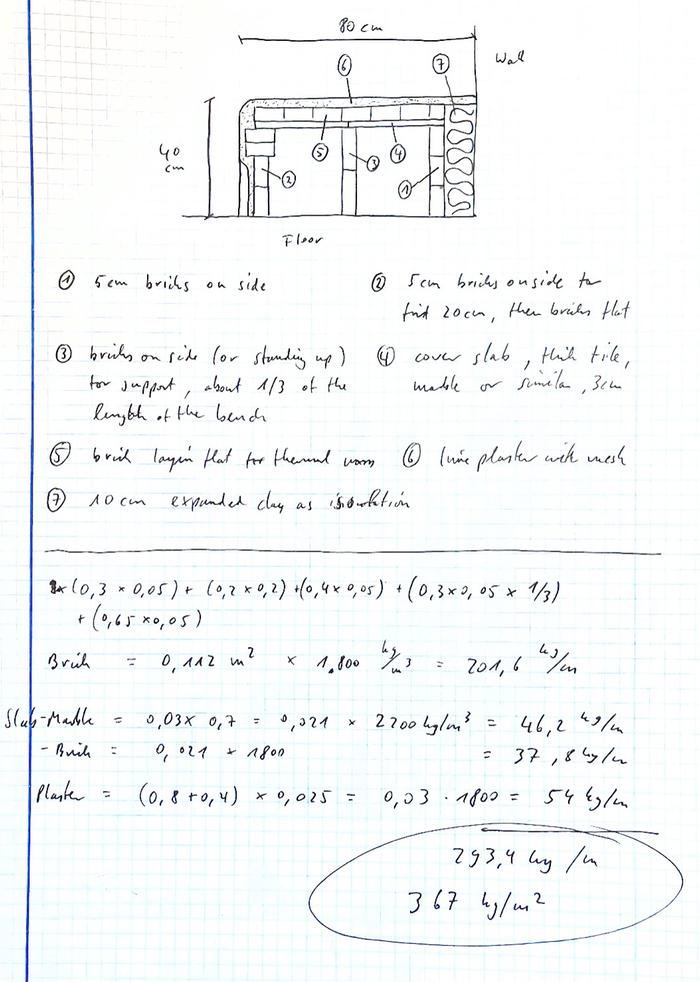 80 cm
Wall
⑥ ⑦
40 cm
⑤ ③ ④
② ①
Floor
① 5cm bricks on side
② 5cm bricks on side for
first 20cm, then bricks flat
③ bricks on side (or standing up)
for support, about 1/3 of the
length of the bench
④ cover slab, thick tile,
marble or similar, 3cm
⑤ brick layer flat for thermal mass
⑥ lime plaster with mesh
⑦ 10 cm expanded clay as isolation
(0,3 × 0,05) + (0,2 × 0,2) + (0,4 × 0,05) + (0,3 × 0,05 × 1/3)
+ (0,65 × 0,05)
Brick = 0,112 m² × 1,800 kg/m³ = 201,6 kg/m
Slab-Marble = 0,03 × 0,7 = 0,021 × 2200 kg/m³ = 46,2 kg/m
- Brick = 0,021 × 1800 = 37,8 kg/m
Plaster = (0,8 + 0,4) × 0,025 = 0,03 · 1800 = 54 kg/m
293,4 kg/m
367 kg/m²